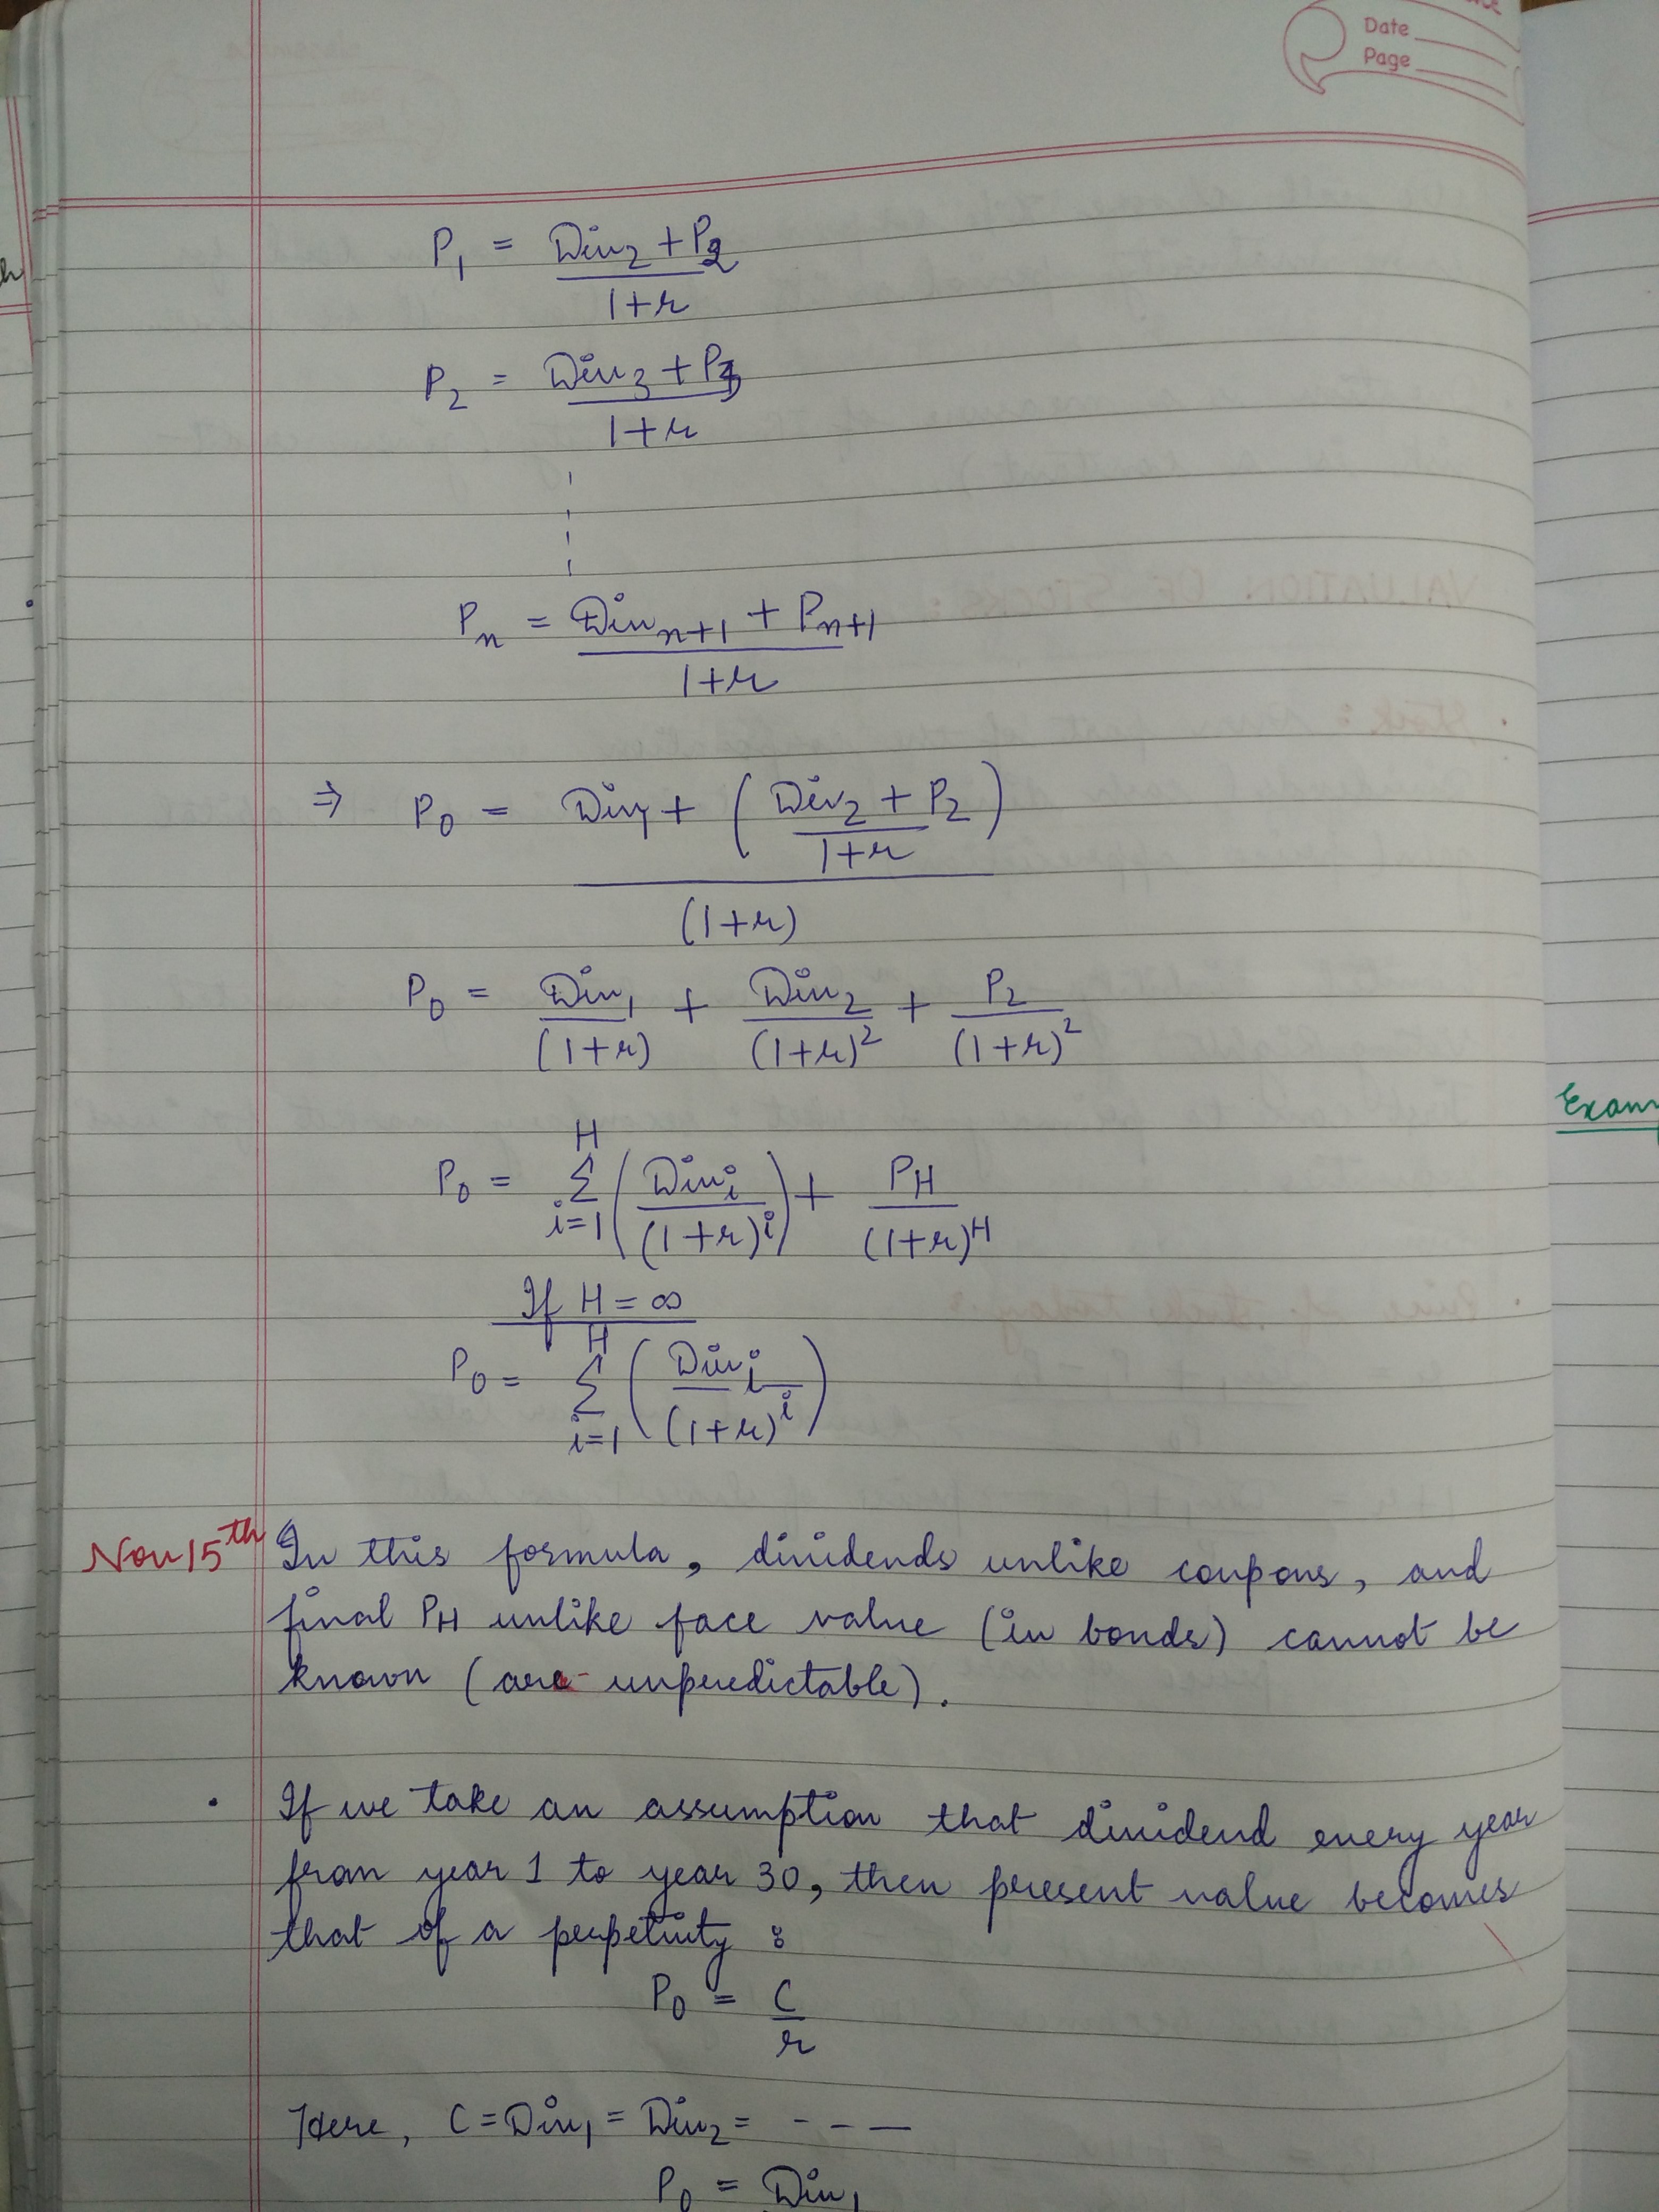 Date
Page
P₁ = (Div₂ + P₂) / (1+r)
P₂ = (Div₃ + P₃) / (1+r)
Pₙ = (Divₙ₊₁ + Pₙ₊₁) / (1+r)
⇒ P₀ = (Div₁ + ((Div₂ + P₂) / (1+r))) / (1+r)
P₀ = Div₁/(1+r) + Div₂/(1+r)² + P₂/(1+r)²
P₀ = Σ_{i=1}^{H} (Divᵢ/(1+r)^i) + P_H/(1+r)^H
If H = ∞
P₀ = Σ_{i=1}^{H} (Divᵢ/(1+r)^i)
Exam
Nov 15th In this formula, dividends unlike coupons, and
final P_H unlike face value (in bonds) cannot be
known (are unpredictable).
· If we take an assumption that dividend every year
from year 1 to year 30, then present value becomes
that of a perpetuity :
P₀ = C/r
Here, C = Div₁ = Div₂ = - - —
P₀ = Div₁